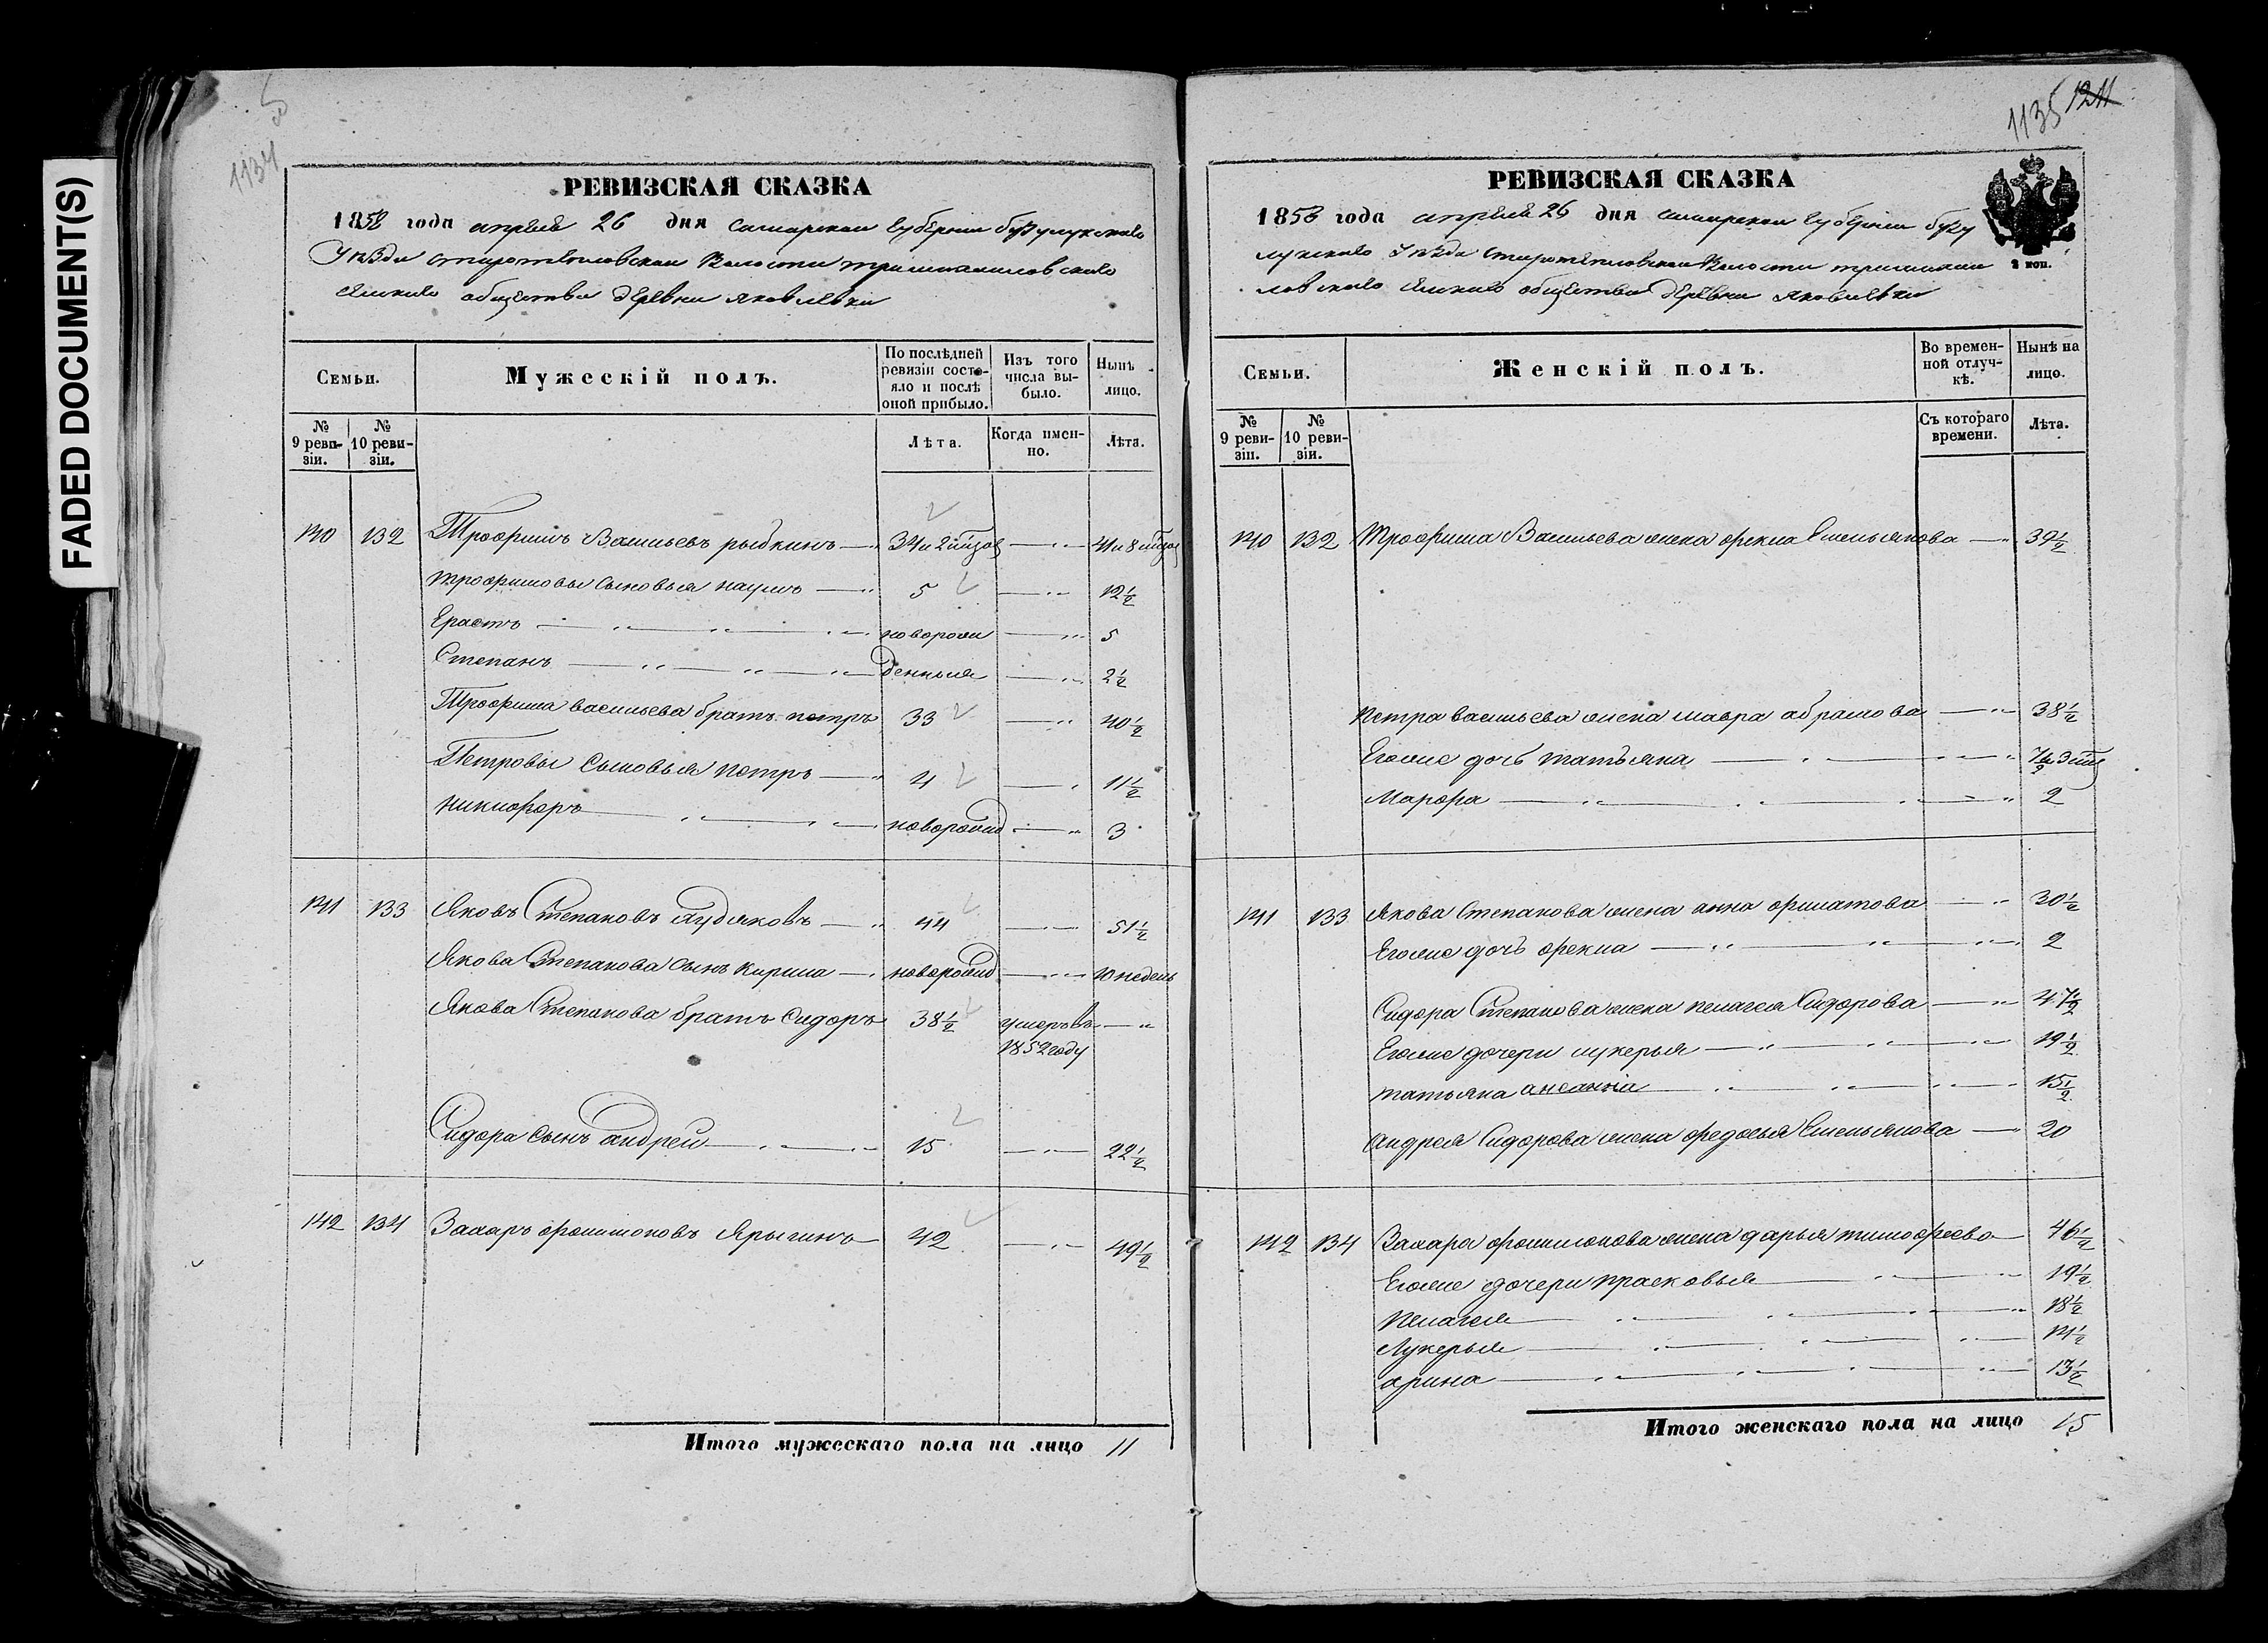 FADED DOCUMENT(S)
1134
РЕВИЗСКАЯ СКАЗКА
1858 года апреля 26 дня самарской губернии бузулукскаго
Уезда старотепловской Волости
селскаго общества деревни яковлевки
Семьи.
Мужескій полъ.
По послѣдней ревизіи состояло и послѣ оной прибыло.
Изъ того числа выбыло.
Нынѣ лицо.
№ 9 ревизіи.
№ 10 ревизіи.
Лѣта.
Когда именно.
Лѣта.
140 132 Трофимъ Васильевъ рыбкинъ 34 и 2 41 и 8
трофимовы сыновья наумъ 5 12 1/2
Ерастъ новорож 5
Степанъ денныя 2 1/2
Трофима васильева братъ петръ 33 40 1/2
Петровы сыновья петръ 4 11 1/2
никифоръ новорожд 3
141 133 Яковъ Степановъ худяковъ 44 51 1/2
Якова Степанова сынъ кирила новорожд 10 недель
Якова Степанова братъ Сидоръ 38 1/2 умеръ въ
1852 году
Сидора сынъ андрей 15 22 1/2
142 134 Захаръ филимоновъ Ярыгинъ 42 49 1/2
Итого мужескаго пола на лицо 11
1135 1211
РЕВИЗСКАЯ СКАЗКА
1858 года апреля 26 дня самарской губернии бузу
лукскаго Уезда старотепловской Волости
ловскаго селскаго общества деревни яковлевки
2 коп.
Семьи.
Женскій полъ.
Во временной отлучкѣ.
Нынѣ на лицо.
№ 9 ревизіи.
№ 10 ревизіи.
Съ котораго времени.
Лѣта.
140 132 Трофима Васильева жена фекла Емельянова 39 1/2
петра васильева жена мавра абрамова 38 1/2
Егоже дочь татьяна
Марфа 2
141 133 Якова Степанова жена анна филатова 30 1/2
Егоже дочь фекла 2
Сидора Степанова жена пелагея Сидорова 47 1/2
Егоже дочери лукерья 19 1/2
татьяна 15 1/2
андрея Сидорова жена федосья Емельянова 20
142 134 Захара филимонова жена дарья тимофеева 46 1/2
Егоже дочери прасковья 19 1/2
пелагея 18 1/2
Лукерья 14 1/2
арина 13 1/2
Итого женскаго пола на лицо 15